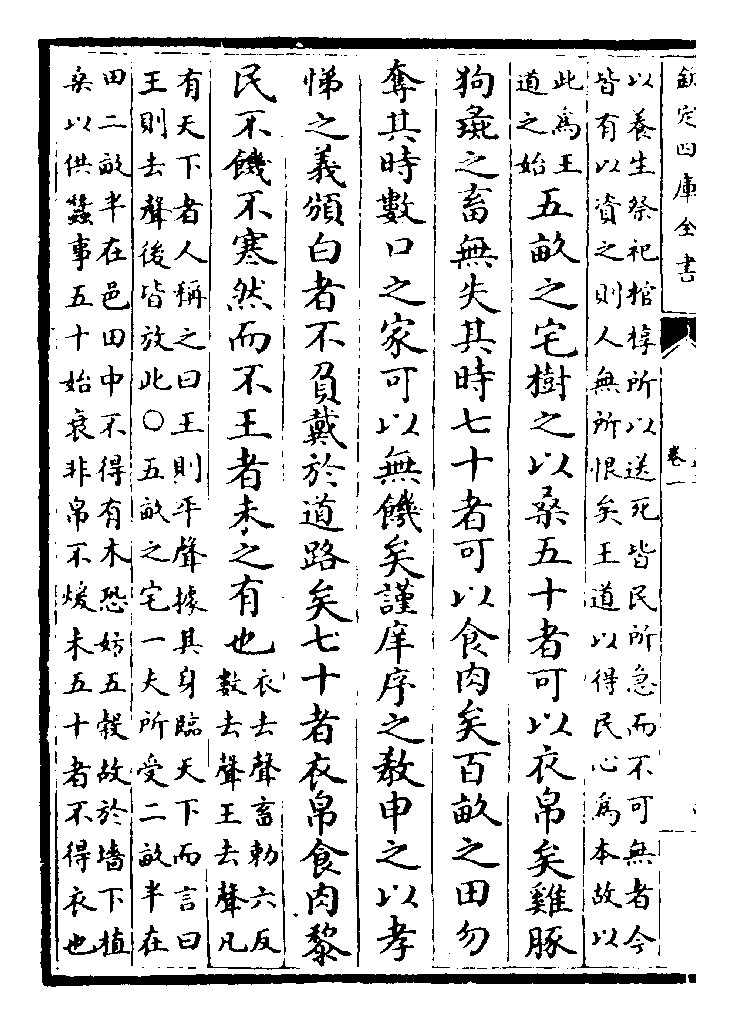 欽定四庫全書
卷一
以養生祭祀棺椁所以送死皆民所急而不可無者今
皆有以資之則人無所恨矣王道以得民心為本故以
此為王
道之始
五畝之宅樹之以桑五十者可以衣帛矣雞豚
狗彘之畜無失其時七十者可以食肉矣百畝之田勿
奪其時數口之家可以無饑矣謹庠序之教申之以孝
悌之義頒白者不負戴於道路矣七十者衣帛食肉黎
民不饑不寒然而不王者未之有也
衣去聲畜勅六反
數去聲王去聲凡
有天下者人稱之曰王則平聲據其身臨天下而言曰
王則去聲後皆放此〇五畝之宅一夫所受二畝半在
田二畝半在邑田中不得有木恐妨五穀故於墻下植
桑以供蠶事五十始衰非帛不煖未五十者不得衣也